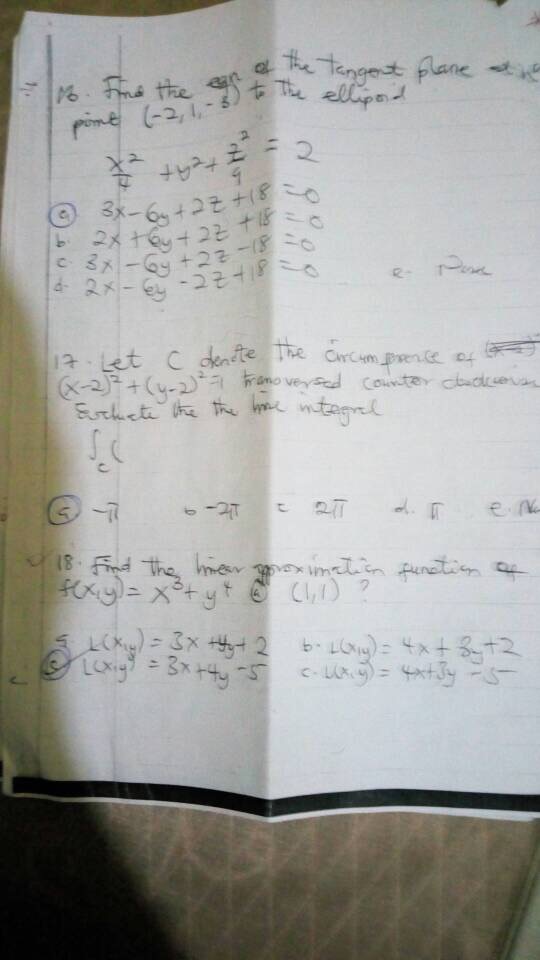 16. Find the eqn of the tangent plane
point (-2, 1, -3) to the ellipsoid
x²/4 + y² + z²/9 = 2
a 3x - 6y + 2z + 18 = 0
b. 2x + 6y + 2z + 18 = 0
c. 3x - 6y + 2z - 18 = 0
d. 2x - 6y - 2z + 18 = 0 e. None
17. Let C denote the circumference of
(x-2)² + (y-2)² = 1 transversed counter
Evaluate the the line integral
∫c (
a -π b -2π c 2π d. π e.
18. Find the linear approximation function of
f(x,y) = x³ + y⁴ @ (1,1) ?
a. L(x,y) = 3x + 4y + 2 b. L(x,y) = 4x + 3y + 2
c L(x,y) = 3x + 4y - 5 c. L(x,y) = 4x + 3y - 5